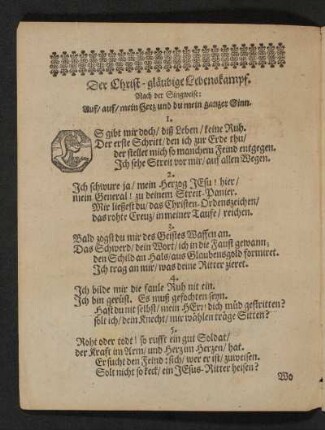 Der Christ-gläubige Lebenskampf.
Nach der Singweise:
Auf/ auf/ mein Herz und du mein ganzer Sinn.
1.
ES gibt mir doch/ diß Leben/ keine Ruh.
Der erste Schritt/ den ich zur Erde thu/
der stellet mich so manchem Feind entgegen.
Ich sehe Streit vor mir/ auf allen Wegen.
2.
Ich schwure ja/ mein Herzog JEsu! hier/
mein General! zu deinem Streit-Panier.
Mir ließest du/ das Christen-Ordenszeichen/
das rohte Creuz/ in meiner Taufe/ reichen.
3.
Bald zogst du mir des Geistes Waffen an.
Das Schwerd/ dein Wort/ ich in die Faust gewann;
den Schild an Hals/ aus Glaubensgold formiret.
Ich trag an mir/ was deine Ritter zieret.
4.
Ich bilde mir die faule Ruh nit ein.
Ich bin gerüst. Es muß gefochten seyn.
Hast du nit selbst/ mein HErr! dich müd gestritten?
solt ich/ dein Knecht/ mir wählen träge Sitten?
5.
Roht oder todt! so rufft ein gut Soldat/
der Kraft im Arm/ und Herz im Herzen/ hat.
Er sucht den Feind: sich/ wer er ist/ zuweisen.
Solt nicht so keck/ ein JEsus-Ritter heisen?
Wo